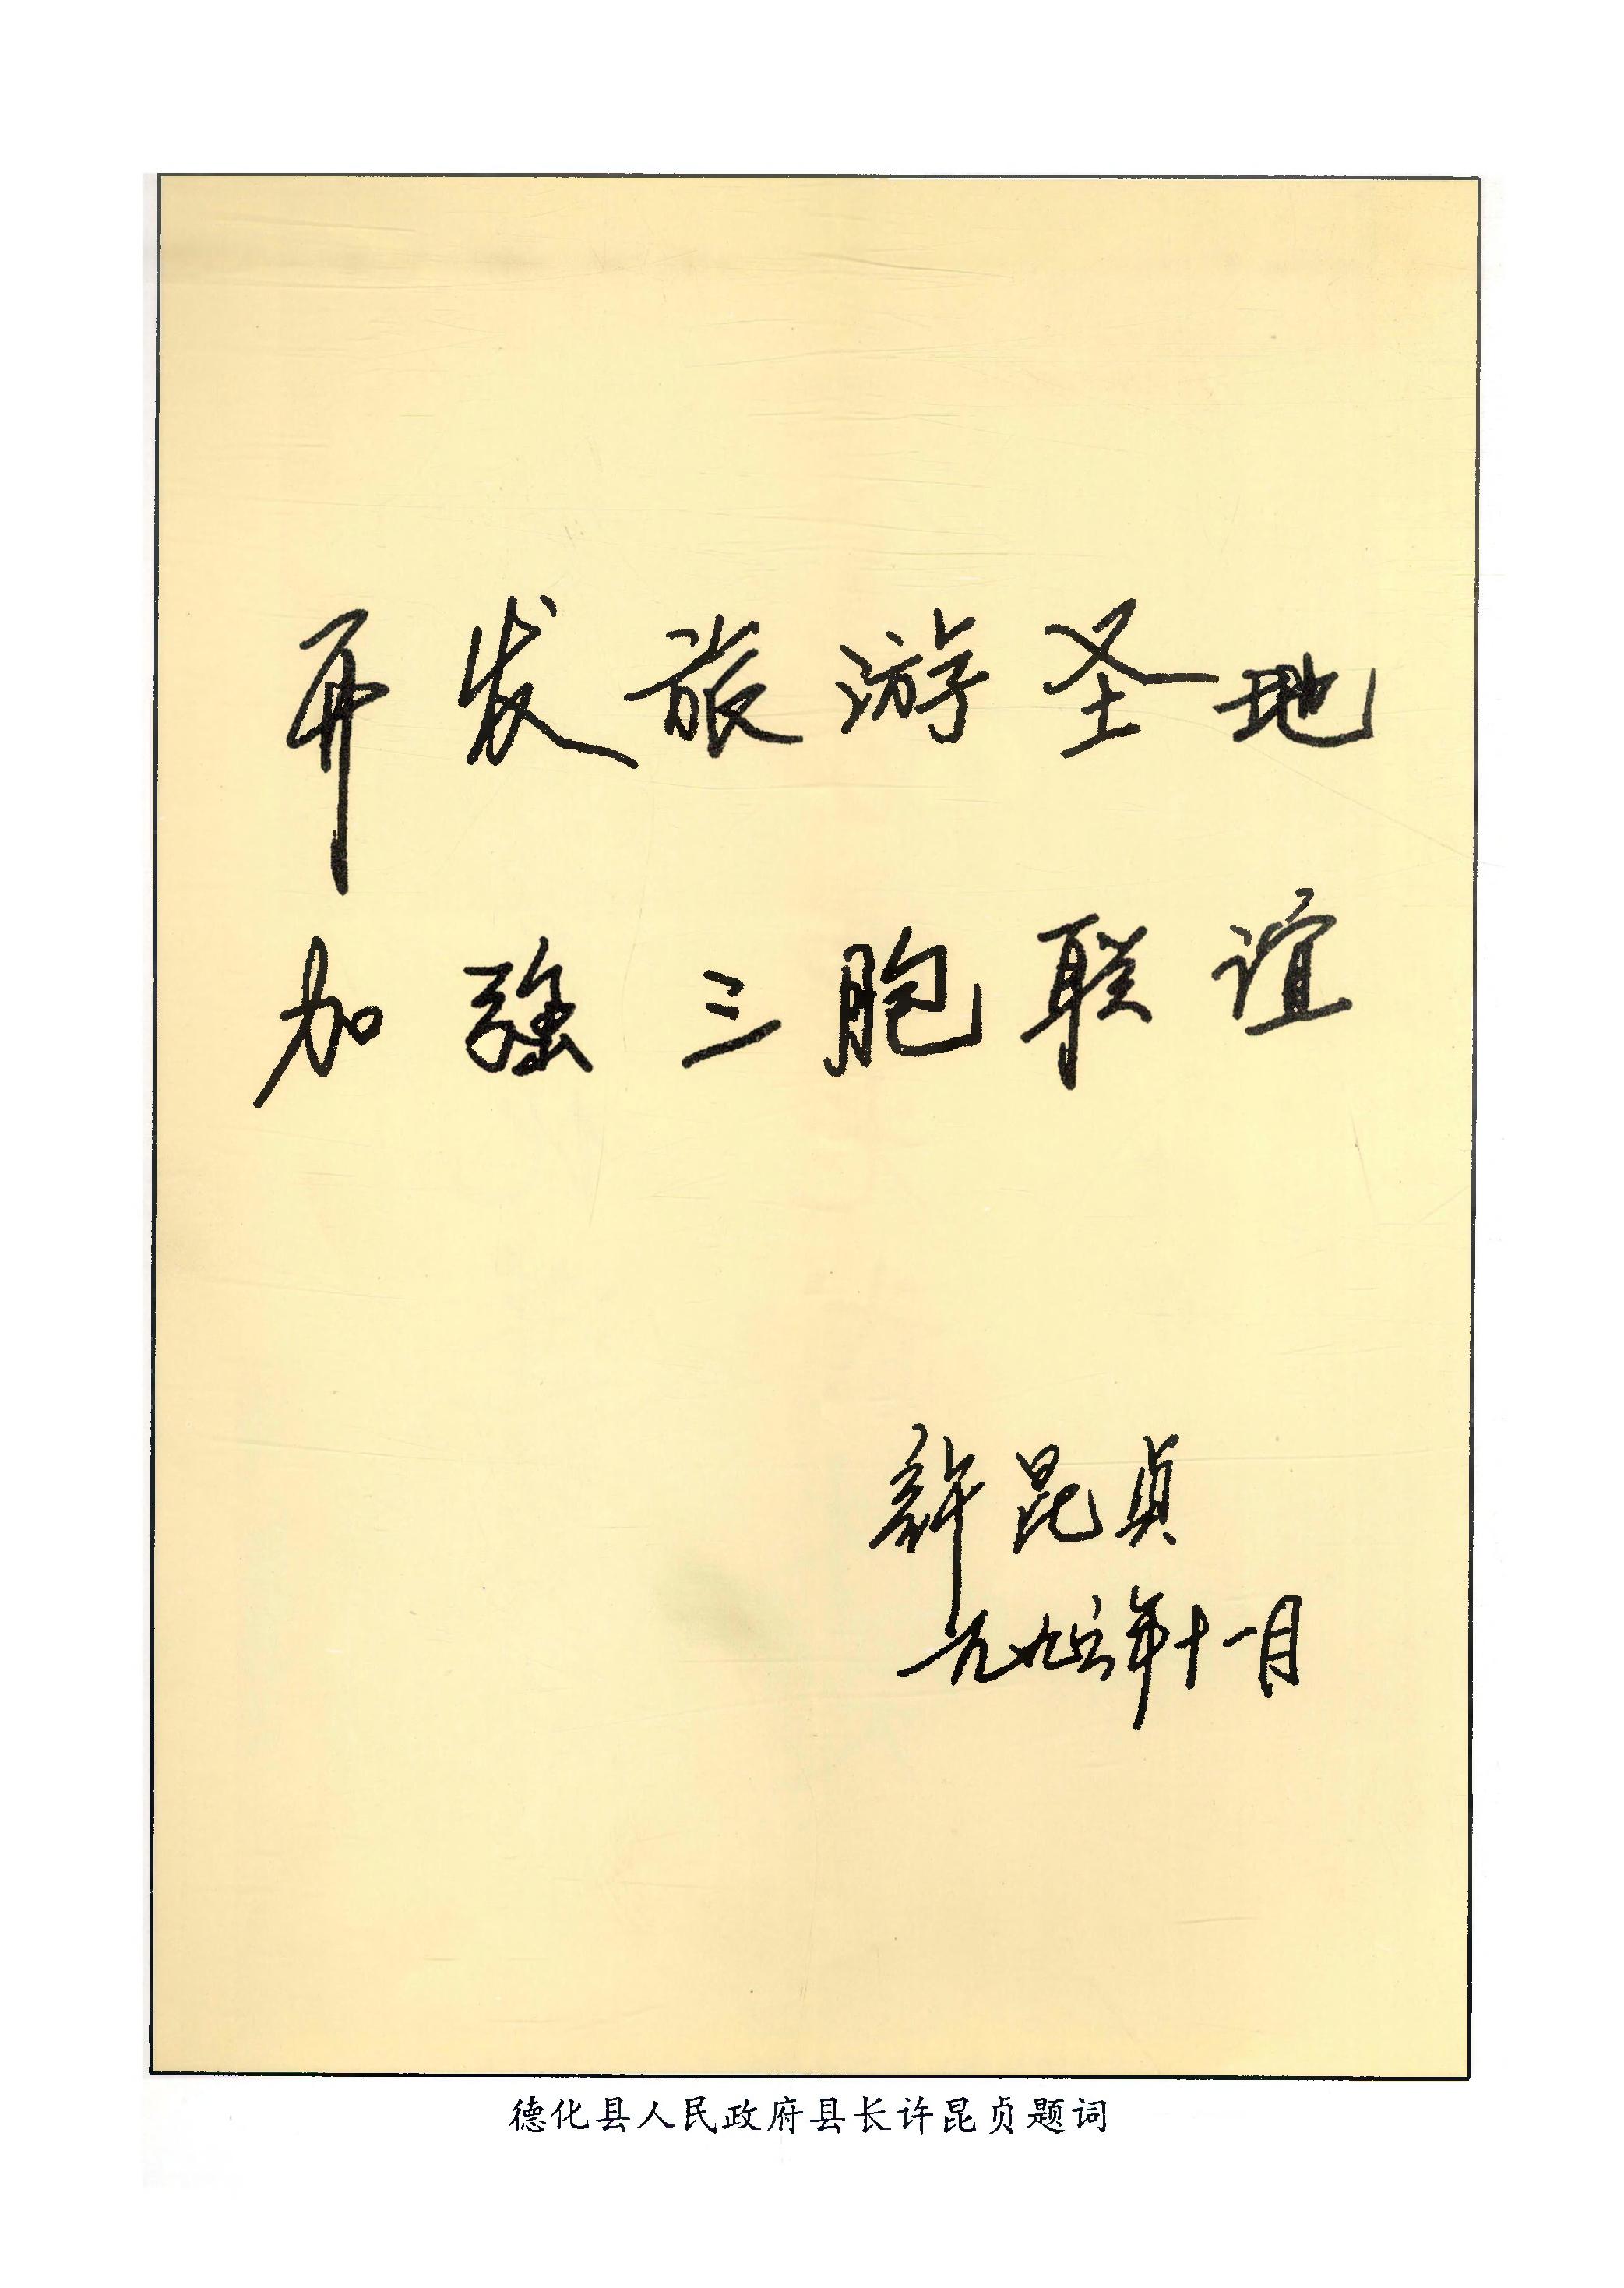 开发旅游圣地
加强三胞联谊
許昆貞
一九九六年十一月
德化县人民政府县长许昆贞题词